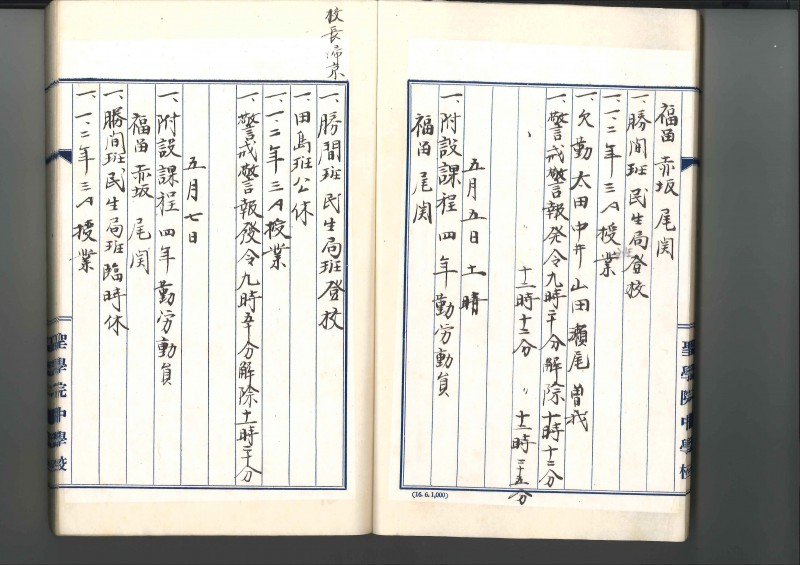 福田 赤坂 尾関
一、勝間班 民生局班登校
一、一、二年 三A 授業
一、欠勤 太田 中井 山田 瀬尾 曽我
一、警戒警報発令九時二十分解除十時十二分
〃 十二時十二分 〃 十二時三十五分
五月五日 土 晴
一、附設課程 四年 勤労動員
福田 尾関
(16.6.1,000)
聖學院中學校
校長帰京
一、勝間班 民生局班登校
一、田島班公休
一、一、二年 三A 授業
一、警戒警報發令九時五十分解除十一時二十分
五月七日
一、附設課程 四年 勤労動員
福田 赤坂 尾関
一、勝間班民生局班臨時休
一、一、二年 三A 授業
聖學院中學校